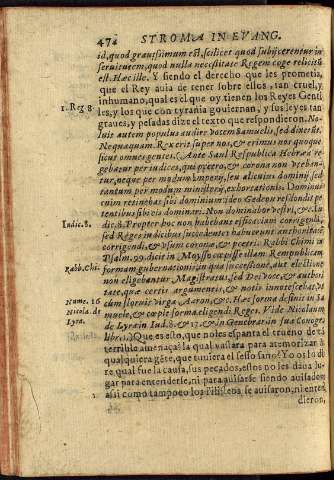 474 STROMA IN EVANG.
id, quod grauissimum est, scilicet quod subijcerentur in
seruitutem, quod nulla necessitate Regem coge relictũ
est. Hæc ille. Y siendo el derecho que les prometia,
que el Rey auia de tener sobre ellos, tan cruel, y
inhumano, qual es el que oy tienen los Reyes Genti
1. Reg 8. les, y los que con tyrania gouiernan, y sus leyes tan
graues, y pesadas dize el texto que respondieron. No-
luit autem populus audire vocem Samuelis, sed dixerũt.
Nequaquam. Rex erit super nos, & erimus nos quoque
sicut omnes gentes. (Ante Saul Respublica Hebræa re
gebatur per iudices, qui
tur, neque per modum Imperij, seu alicuius dominij sed
tantum per modum ministerij, exhortationis. Dominiũ
enim retinebat sibi dominium ideo Gedeon respondit pe
tentibus sibi eis dominari. Non dominabor vestri, & Iu
Iudic. 8. dic. 8. Propter hoc non habebant officia tum corrigendi,
sed Reges iudicibus succedentes habuerunt authoritatẽ
corrigendi, & vsum corona, & sceptri. Rabbi Chimi in
Psalm. 99. dicit in Moysse cœpisse illam Rempublicam
Rabb. Chi. formam gubernationis in qua successione, aut electione
non eligebantur Magistratus, sed Dei voce, & authori
tate, quæ certis argumentis, & notis innotescebat, vt
Nume. 16 cum floruit virga Aaron, & c. Hæc forma desinit in Sa
Nicola. de muele, & cœpit forma eligendi Reges. Vide Nicolaum
Lyra. de Lyra in Iud. 8. & 17. & in Genebrar. in sua Conogra
libr. 1.) Que es esto, que no les espanta el trueno de tã
terrible amenaça? la qual vastara para atemorizar a
qualquiera gẽte, que tuuiera el sesso sano? Yo os lo di
re qual fue la causa, sus pecados, estos no les daua lu-
gar para entenderlo, ni para auisarse siendo auisados
assi como tampoco los Filisteos se auisaron, ni enten
dieron,